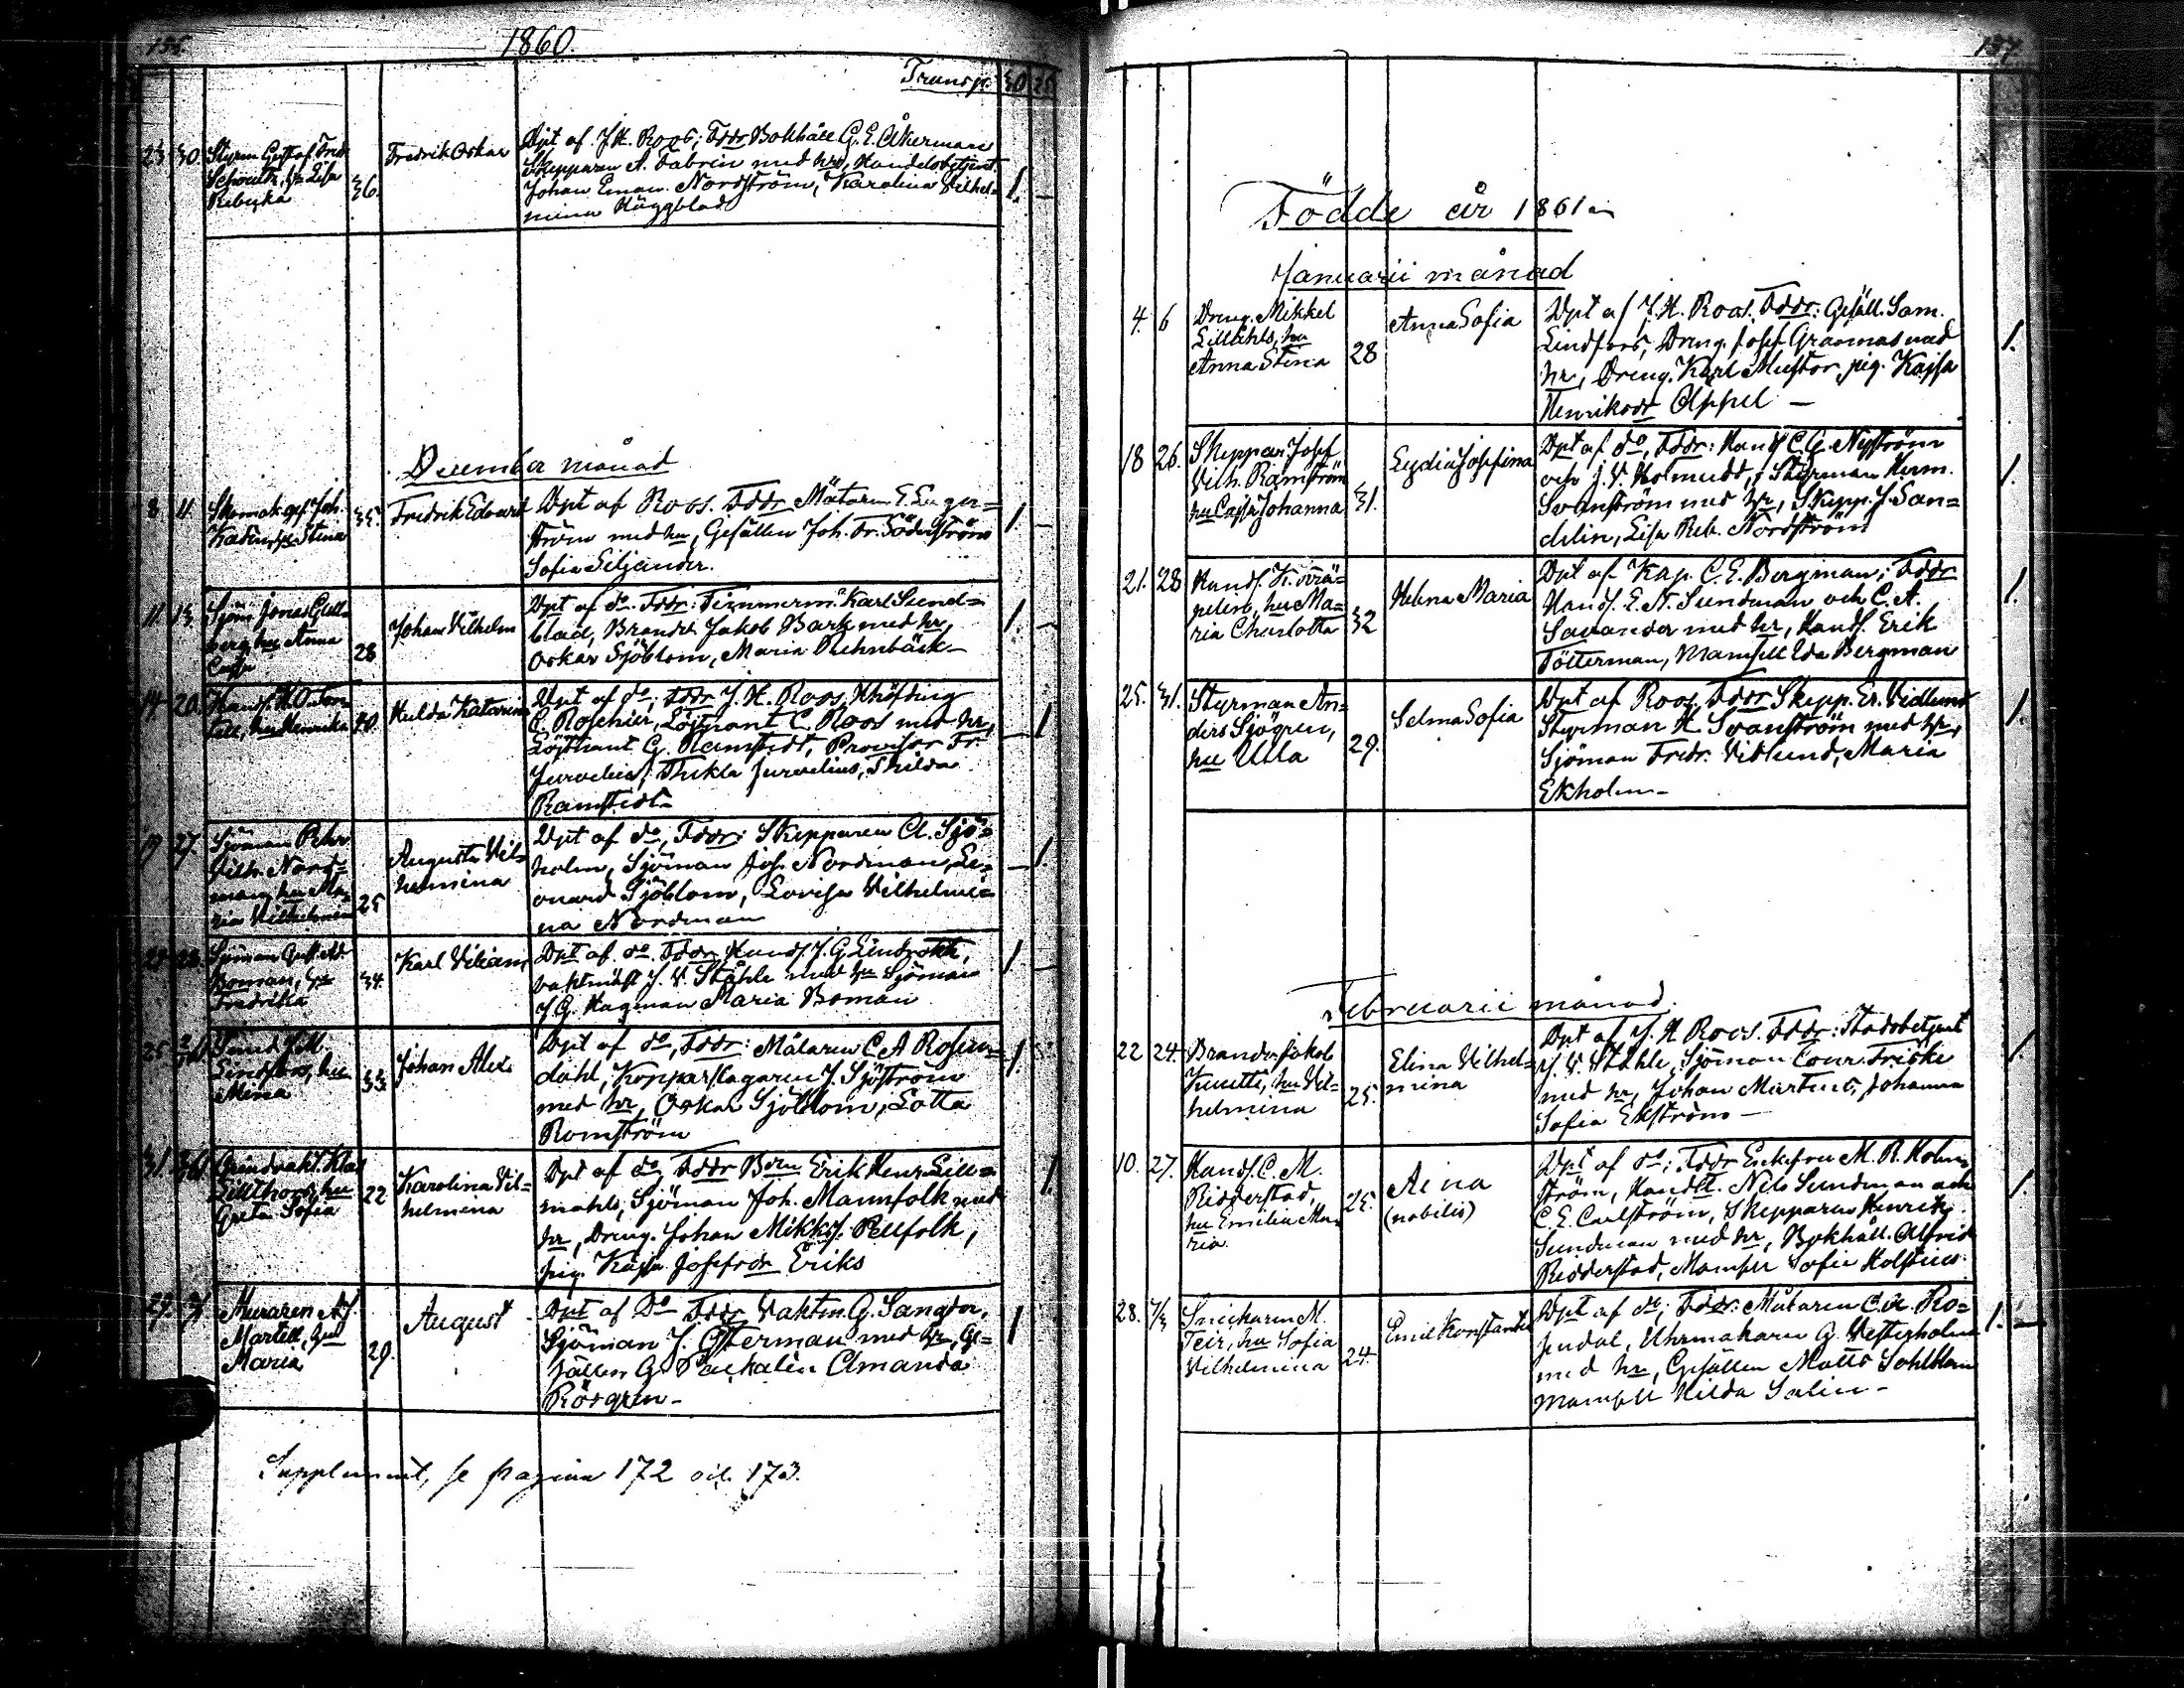 1860.
Transp. 30 25
23 30 Styrm Gustaf Fredr
Schoultz, hu Lisa
Rebecka 36.
Fredrik Oskar
Dpt af J. H. Roos; Fddr Bokhåll G. E. Åkerman
Skepparen A. Dabrin med hr, Handelsbetjent.
Johan Eman. Nordström, Karolina Vilhel-
mina Häggblad
1.
December månad
8. 11. Skomak. ges. Joh.
Kadin, hu Stina 35.
Fredrik Edvard
Dpt af Roos. Fddr Mätaren E. Enger=
ström med hu, Gesällen Joh. Fr. Söderström
Sofia Siljander.
1.
11. 13. Sjöm Jonas Gull
berg, hu Anna
Cajsa 28
Johan Vilhelm
Dpt af do. Fddr: Timmerm. Karl Sund=
blad, Brandv. Jakob Bark med hr,
Oskar Sjöblom, Maria Rehnbäck
1.
14. 20. Handl. H. O.
hu Henrika 40.
Hulda Katarina
Dpt af do; Fddr J. H. Roos, Khöfding
C. Roschier, Löjtnant C. Roos med hr,
Löjtnant G. Ramstedt, Provisor Fr.
Jurvelius, Thekla Jurvelius, Thilda
Ramstedt
1
19 27. Sjöman Pehr
Vilh. Nord=
man, hu Ma=
ria Vilhelmina 25
Augusta Vil=
helmina
Dpt af do, Fddr: Skepparen A. Sjö=
holm, Sjöman Joh. Nordman, Le=
onard Sjöblom, Lovisa Vilhelmi=
na Nordman
1.
Sjöman Gust. Ad.
Boman, hu
Fredrika 34.
Karl Viliam
Dpt af do. Fddr Handl. J. G. Lindroth,
vaktmäst J. V. Ståhle med hu Sjöman
J. G. Hagman Maria Boman
1
25.
Lindfors, hu
Mina 33.
Johan Alex.
Dpt af do, Fddr: Målaren C. A Rosen=
dahl, Kopparslagaren J. Sjöström
med hr, Oskar Sjöblom, Lotta
Romström
1.
31. Gründvakt. Klas
Lillthors, hu
Greta Sofia 22
Karolina Vil=
helmina
Dpt af do, Fddr Bdn Erik Henr. Lill=
mahls, Sjöman Joh. Mannfolk med
hr, Dreng. Johan Mikkels. Rellfolk,
pig. Kajsa Josefsdr Eriks
1.
29. Muraren A. J.
Martell, hu
Maria 29.
August
Dpt af Do Fddr Vaktm. G. Sangder,
Sjöman J. Österman med hr, Ge=
sällen G. Packalén Amanda
Rösgren
1
Supplement, se pagina 172 och 173.
157.
Födde år 1861
Januarii månad
4. 6 Dreng. Mikkel
Lillåhls, hu
Anna Stina 28
Anna Sofia
Dpt af J. H. Roos. Fddr: Gesäll. Sam.
Lindfors, Dreng. Josef Granmas med
hr, Dreng. Karl Mustor pig. Kajsa
Henriksdr Appel
1.
18 26. Skeppar. Josef
Vilh. Ramström
hu Cajsa Johanna 31.
Lydia Josefina
Dpt af do, Fddr: Handl C. G. Nyström
och J. V. Holmudd, Styrman Herm.
Svanström med hr, Skepp. J. San=
delin, Lisa Reb. Nordström
1.
21. 28 Handl. K.
hu Ma=
ria Charlotta 32
Helena Maria
Dpt af Kap. C. E. Bergman; Fddr
Handl. E. N. Sundman och C. A.
Savander med hr, Handl. Erik
Tötterman, Mamsell Ida Bergman
1.
25. 31. Styrman An=
ders Sjögren,
hu Ulla 29.
Selma Sofia
Dpt af Roos. Fddr Skepp. Er. Vidlund
Styrman H. Svanström med hr,
Sjöman Fredr. Vidlund, Maria
Ekholm
1.
Februarii månad.
22 24. Brandv. Jakob
Knutti, hu Vil=
helmina 25.
Elina Vilhel=
mina
Dpt af J. H. Roos. Fddr: Stadsbetjent
J. V. Ståhle, Sjöman Conr. Friske
med hr, Johan Martins, Johanna
Sofia Ekström
1.
10. 27. Handl. C. M.
Ridderstad,
hu Emilia Ma=
ria. 25.
Aina
(nobilis)
Dpt af do; Fddr Enkefru M. R. Holm
ström, Handl. Nils Sundman och
C. E. Carlström, Skepparen Henrik
Sundman med hr, Bokhåll. Alfrid
Ridderstad, Mamsell Sofie Holstius
1.
28. 7/3 Snickaren M.
Teir, hu Sofia
Vilhelmina 24.
Emil Konstantin
Dpt af do; Fddr: Målaren C. A. Ro=
sendal, Uhrmakare G. Vesterholm
med hr, Gesällen Matts Sahlblom
Mamsell Hilda Salin
1.